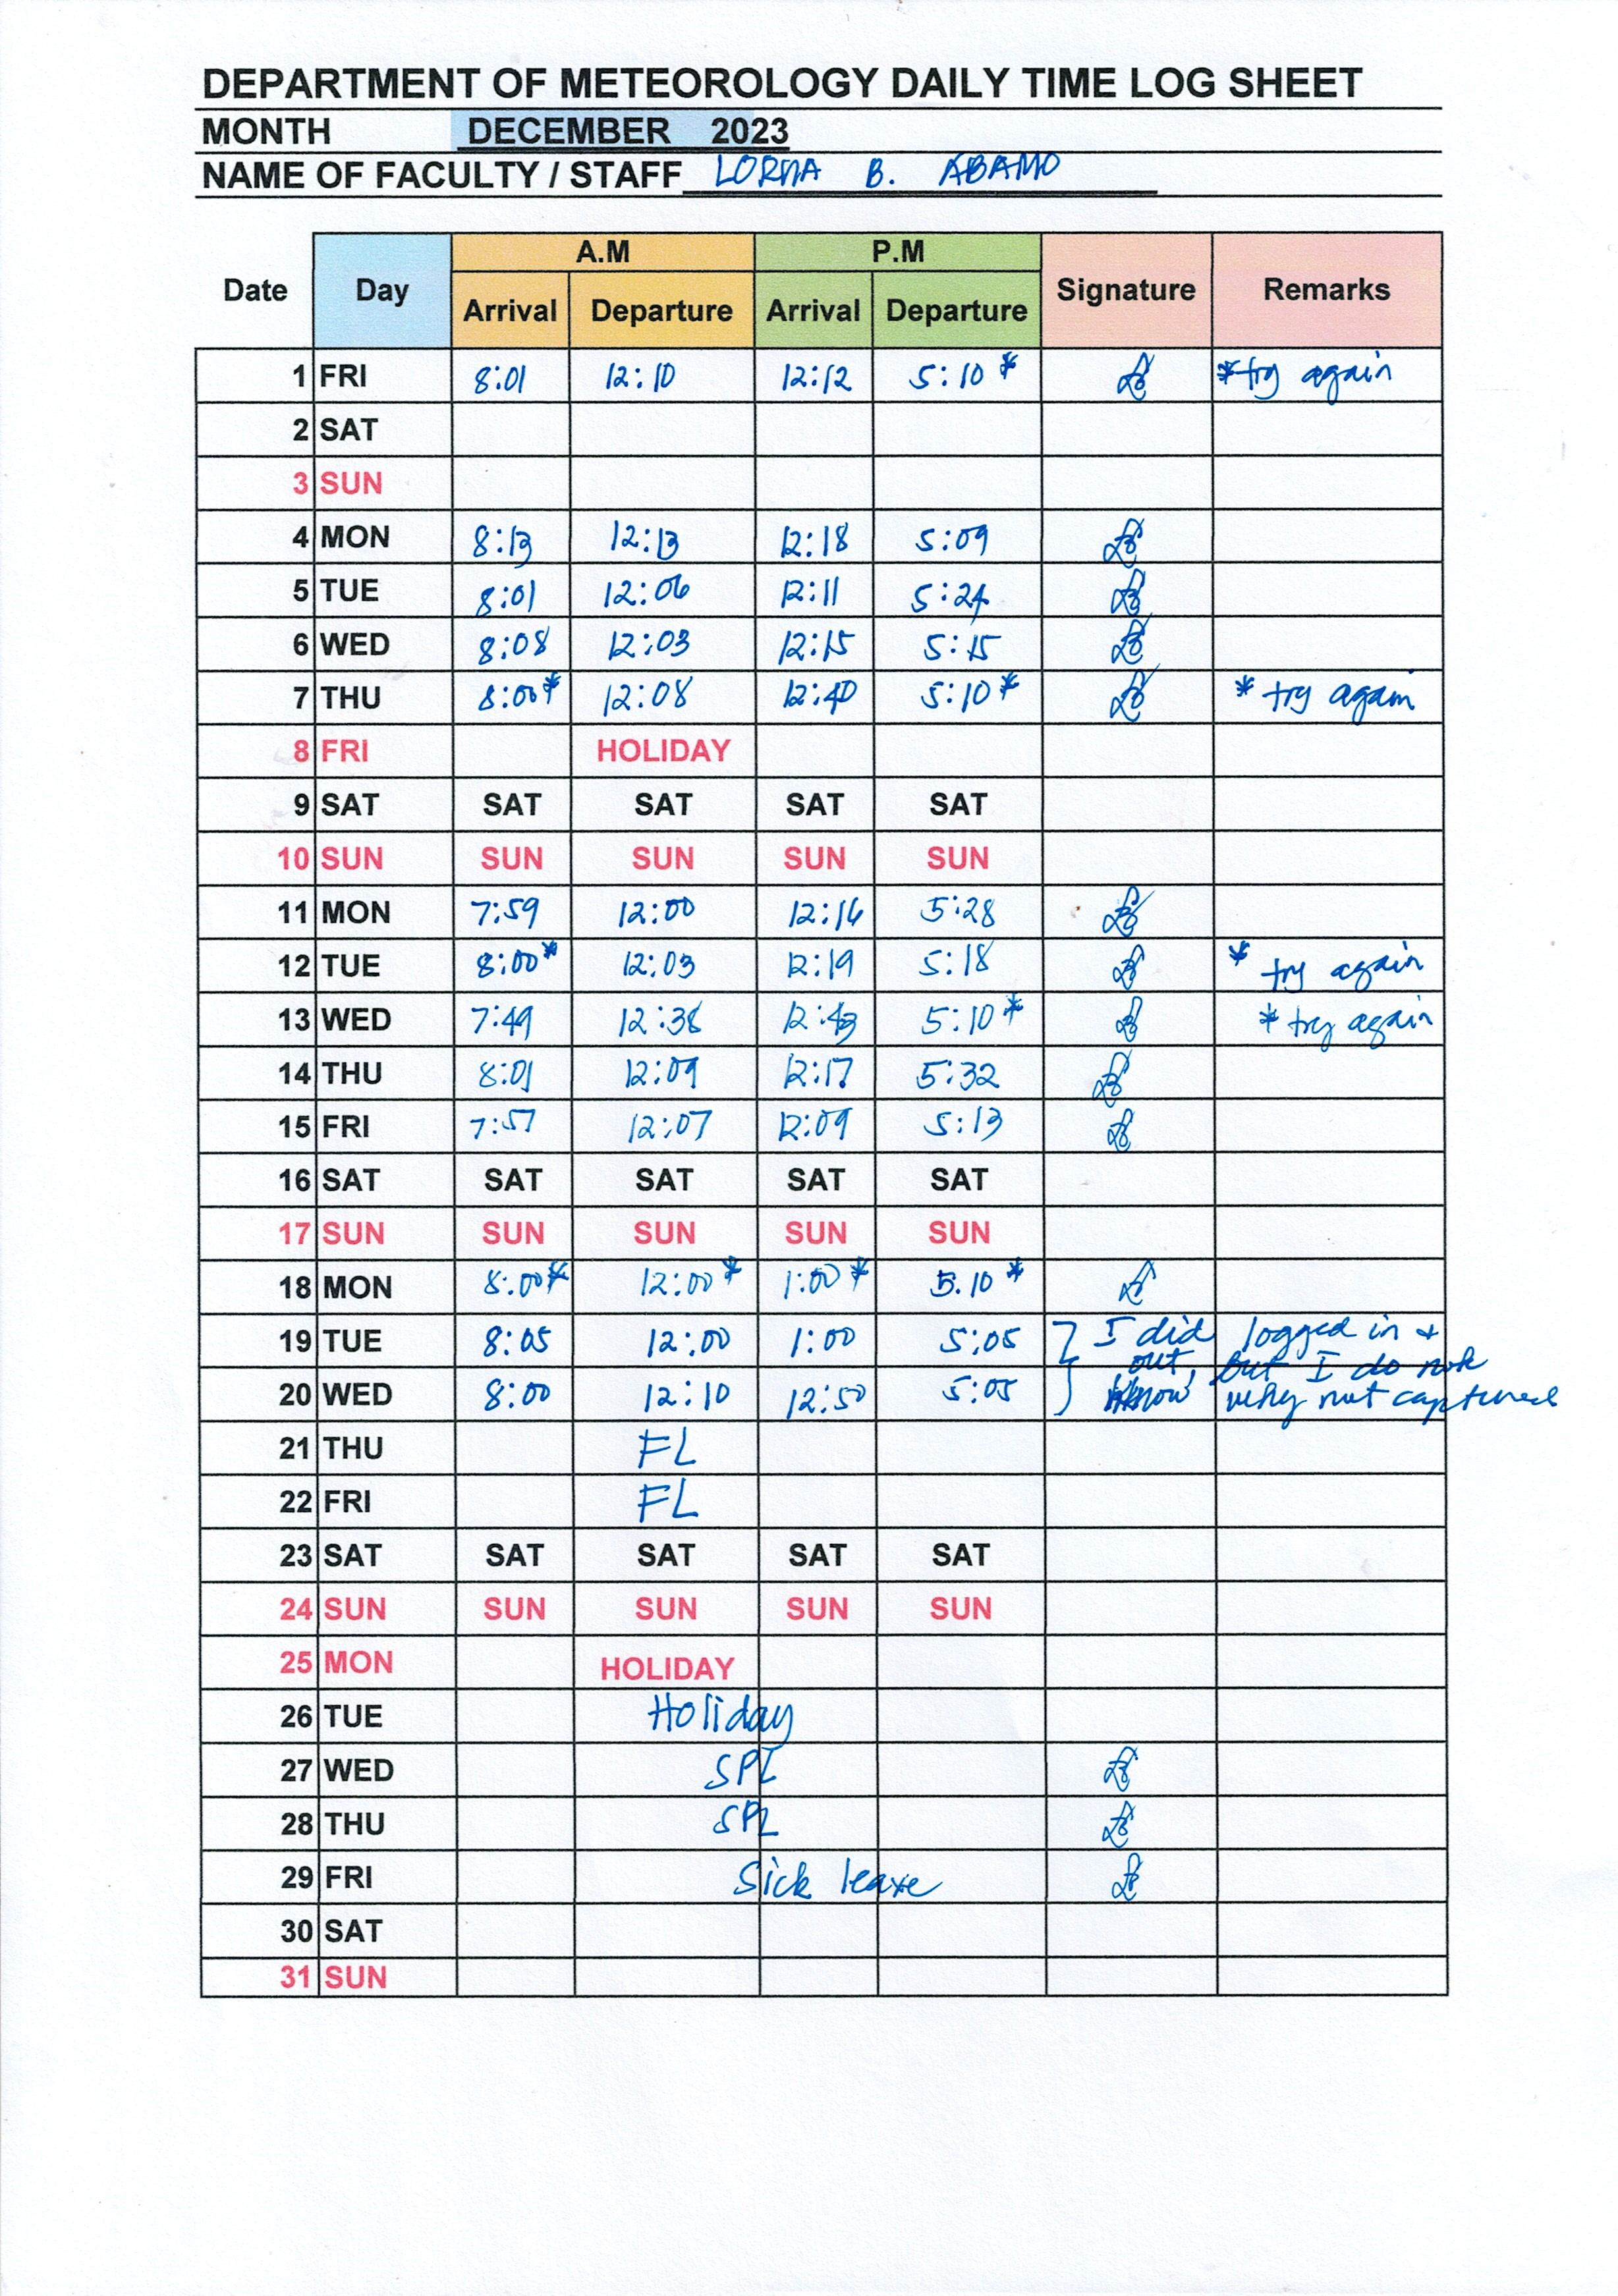 DEPARTMENT OF METEOROLOGY DAILY TIME LOG SHEET
MONTH DECEMBER 2023
NAME OF FACULTY / STAFF LORNA B. ABAMO
Date Day A.M P.M Signature Remarks
Arrival Departure Arrival Departure
1 FRI 8:01 12:10 12:12 5:10* *try again
2 SAT
3 SUN
4 MON 8:13 12:13 12:18 5:09
5 TUE 8:01 12:06 12:11 5:24
6 WED 8:08 12:03 12:15 5:15
7 THU 8:00* 12:08 12:40 5:10* * try again
8 FRI HOLIDAY
9 SAT SAT SAT SAT SAT
10 SUN SUN SUN SUN SUN
11 MON 7:59 12:00 12:16 5:28
12 TUE 8:00* 12:03 12:19 5:18 * try again
13 WED 7:49 12:38 12:43 5:10* * try again
14 THU 8:01 12:09 12:17 5:32
15 FRI 7:57 12:07 12:09 5:13
16 SAT SAT SAT SAT SAT
17 SUN SUN SUN SUN SUN
18 MON 8:00* 12:00* 1:00* 5.10*
19 TUE 8:05 12:00 1:00 5:05 I did logged in +
out, but I do not
20 WED 8:00 12:10 12:50 5:05 know why not captured
21 THU FL
22 FRI FL
23 SAT SAT SAT SAT SAT
24 SUN SUN SUN SUN SUN
25 MON HOLIDAY
26 TUE Holiday
27 WED SPL
28 THU SPL
29 FRI Sick leave
30 SAT
31 SUN